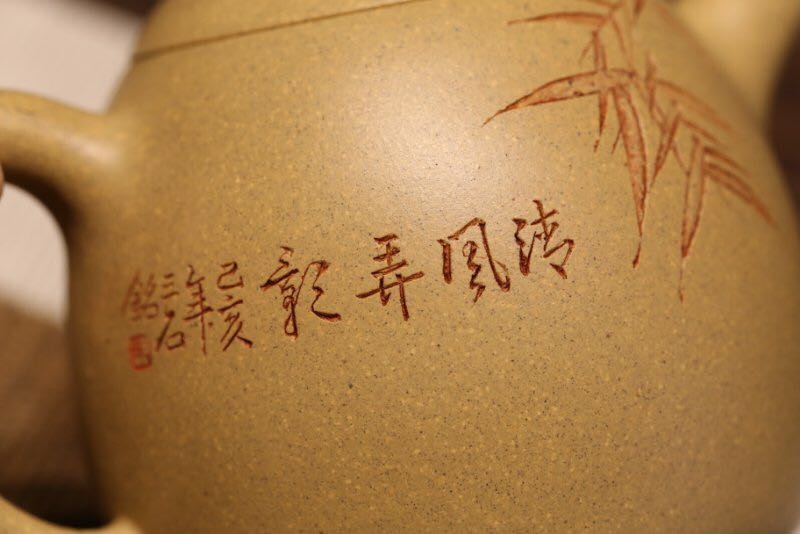 清風弄影
己亥
年
三石
銘